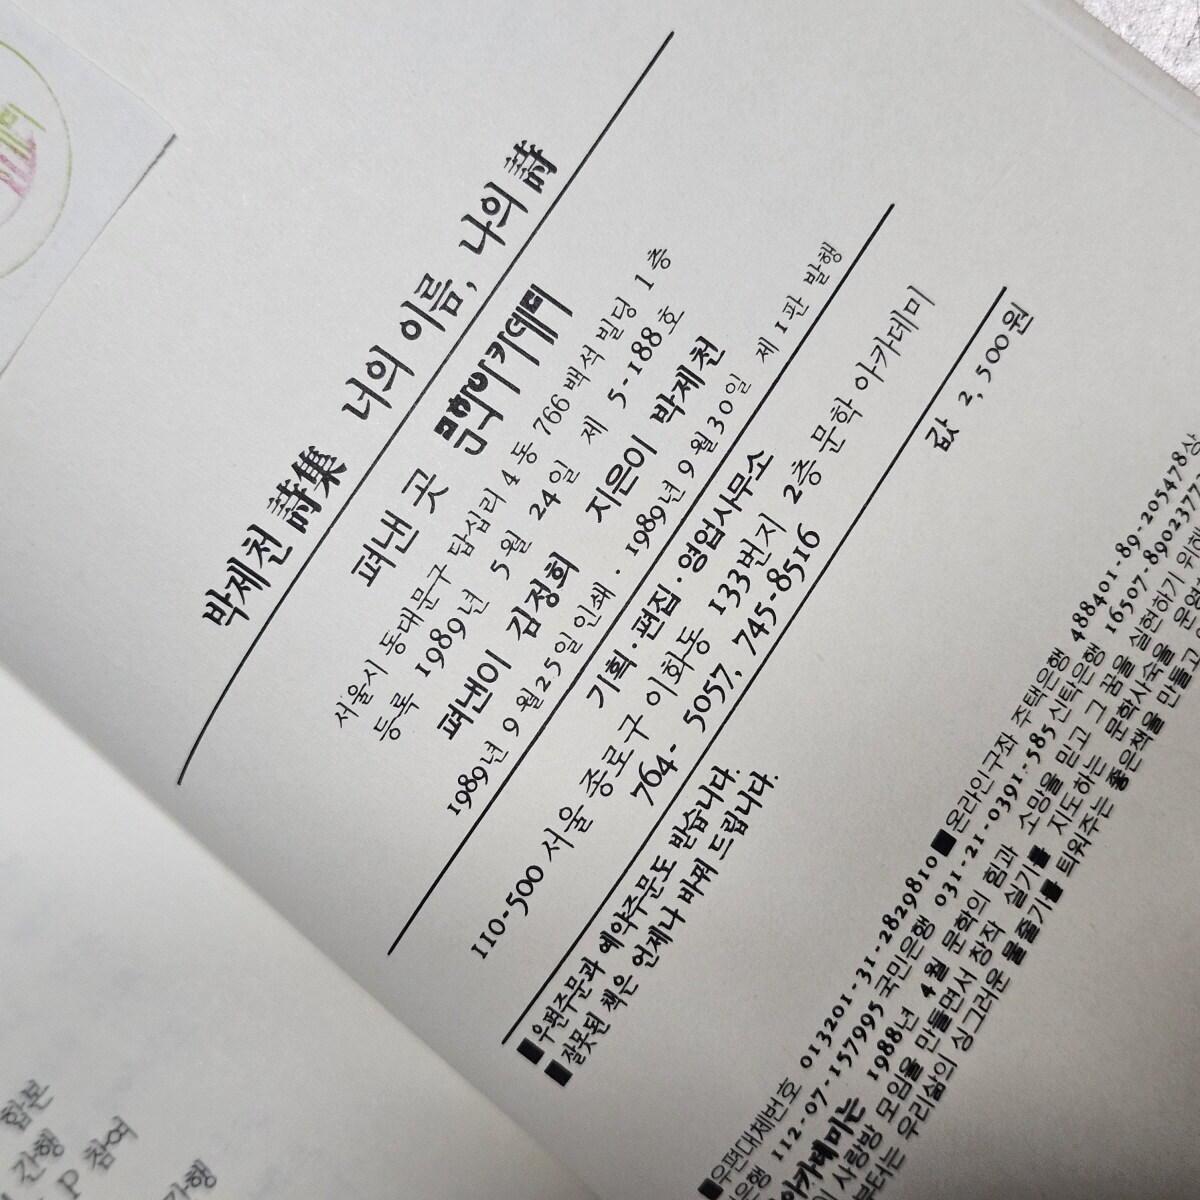 박제천 詩集 너의 이름, 나의 詩
펴낸 곳 문학아카데미
서울시 동대문구 답십리 4 동 766 백석 빌딩 1 층
등록 1989년 5월 24일 제 5-188호
펴낸이 김정희 지은이 박제천
1989년 9월25일 인쇄·1989년 9월30일 제1판 발행
기획·편집·영업사무소
110-500 서울 종로구 이화동 133번지 2층 문학 아카데미
764-5057, 745-8516
값 2,500원
■우편주문과 예약주문도 받습니다.
■잘못된 책은 언제나 바꿔 드립니다.
■우편대체번호 013201-31-2829810 ■온라인구좌 주택은행 488401-89-205478상
은행 112-07-157995 국민은행 031-21-0391-585 신탁은행 16507-8902377
아카데미는 1988년 4월 문학의 힘과 소망을 믿고 그 꿈을 실현하기 위해
사랑방 모임을 만들면서 창작 실기를 지도하는 문학사숙을
부터는 우리삶의 싱그러운 물줄기를 틔워주는 좋은책을 만들고
합본
간행
P 참여
간행